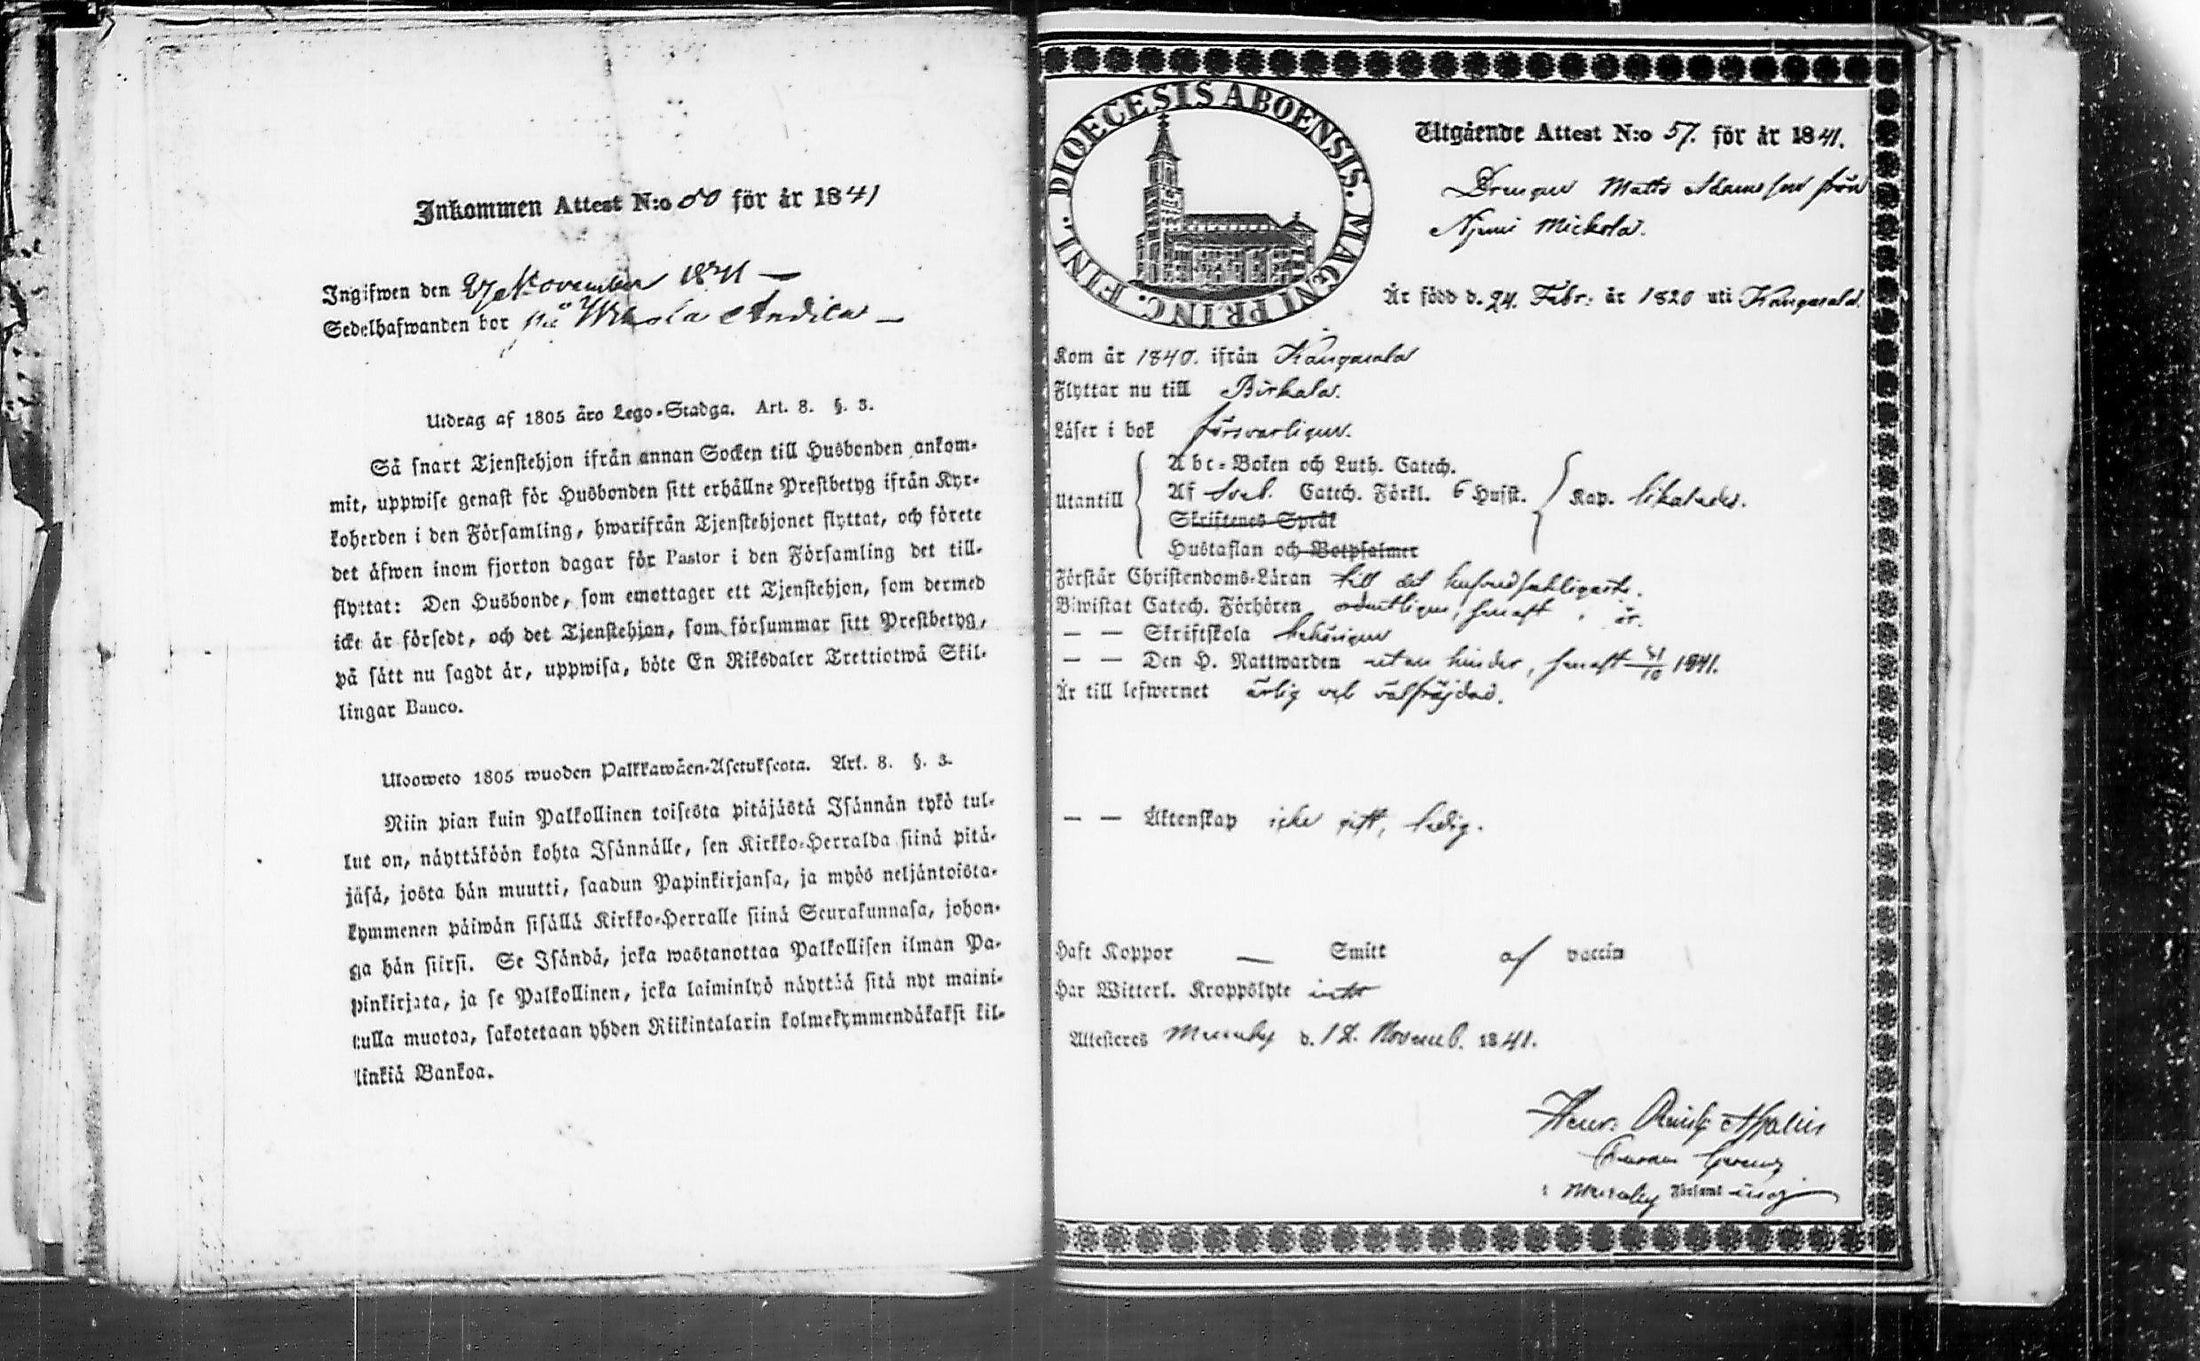 Inkommen Attest N:o 80 för år 1841
Ingifwen den 27 November 1841 —
Sedelhafwanden bor på Andila —
Utdrag af 1805 års Lego-Stadga. Art. 8. §. 3.
Så snart Tjenstehjon ifrån annan Socken till Husbonden ankom-
mit, uppwise genast för Husbonden sitt erhållne Prestbetyg ifrån Kyr-
koherden i den Församling, hwarifrån Tjenstehjonet flyttat, och förete
det äfwen inom fjorton dagar för Pastor i den Församling det till-
flyttat: Den Husbonde, som emottager ett Tjenstehjon, som dermed
icke är försedt, och det Tjenstehjon, som försummar sitt Prestbetyg,
på sätt nu sagdt är, uppwisa, böte En Riksdaler Trettiotwå Skil-
lingar Banco.
Ulosweto 1805 wuoden Palkkawäen-Asetuksesta. Art. 8. §. 3.
Niin pian kuin Palkollinen toisesta pitäjästä Isännän tykö tul-
lut on, näyttäköön kohta Isännälle, sen Kirkko-Herralda siinä pitä-
jäsä, josta hän muutti, saadun Papinkirjansa, ja myös neljäntoista-
kymmenen päiwän sisällä Kirkko-Herralle siinä Seurakunnasa, johon-
ga hän siirsi. Se Isändä, joka wastanottaa Palkollisen ilman Pa-
pinkirjata, ja se Palkollinen, joka laiminlyö näyttää sitä nyt maini-
tulla muotoa, sakotetaan yhden Riikintalarin kolmekymmendäkaksi kil-
linkiä Bankoa.
FINL. DIOECESIS ABOENSIS. MAGNI PRINC.
Utgående Attest N:o 57. för år 1841.
Drengen Matts Adamsson från
Mickola.
Är född d. 24. Febr: år 1820 uti Kangasala.
Kom år 1840. ifrån Kangasala
Flyttar nu till Birkala.
Läser i bok försvarligen.
Utantill
Abc-Boken och Luth. Catech.
Af Sveb. Catech. Förkl. 6 Hufst.
Skriftenes Språk
Hustaflan och Botpsalmer
Kap. likaledes.
Förstår Christendoms-Läran till det hufvudsakligaste.
Biwistat Catech. Förhören ordentligen, senast i år.
— — Skriftskola behörigen
— — Den H. Nattwarden utan hinder, senast 31/10 1841.
Är till lefwernet ärlig och välfräjdad.
— — Äktenskap icke gift, ledig.
Haft Koppor — Smitt af vaccin
Har Witterl. Kroppslyte intet
Attesteres Messuby d. 12. Novemb. 1841.
Henr:
i Messuby Församling